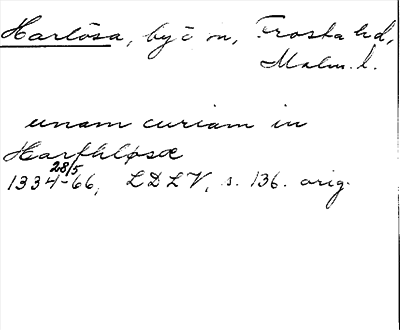 Harlösa, by i sn, Frosta hd,
Malm. l.
unam curiam in
Harfhløsæ
28/5
1334-66, LDLV, s. 136. orig.